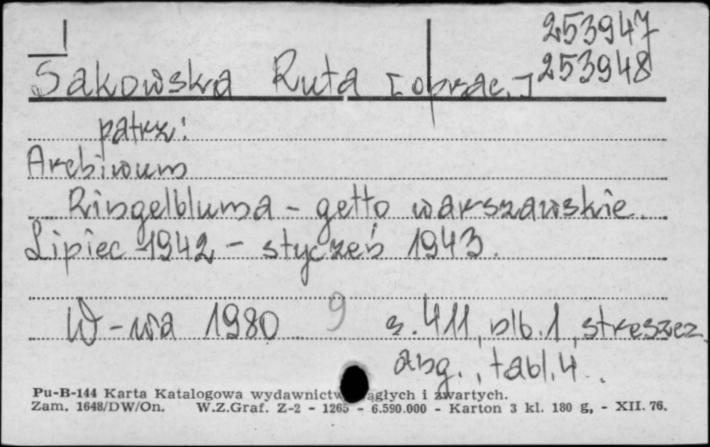 253947
Sakowska Ruta [oprac.] 253948
patrz:
Archiwum
Ringelbluma - getto warszawskie.
Lipiec 1942 - styczeń 1943.
W-wa 1980 9 s. 411, nlb. 1, streszcz.
ang., tabl. 4.
Pu-B-144 Karta Katalogowa wydawnictw ągłych i zwartych.
Zam. 1648/DW/On. W.Z.Graf. Z-2 - 1265 - 6.590.000 - Karton 3 kl. 180 g, - XII. 76.